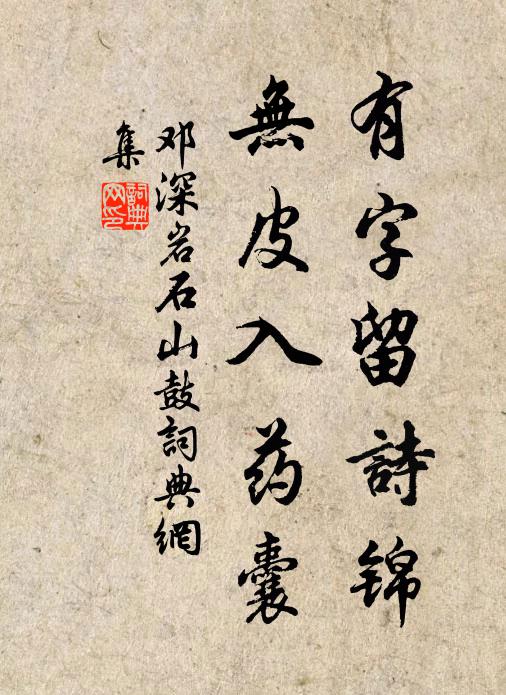 有字留詩锦
無皮入药囊
邓深岩石山鼓詞典網
集
詞典网印